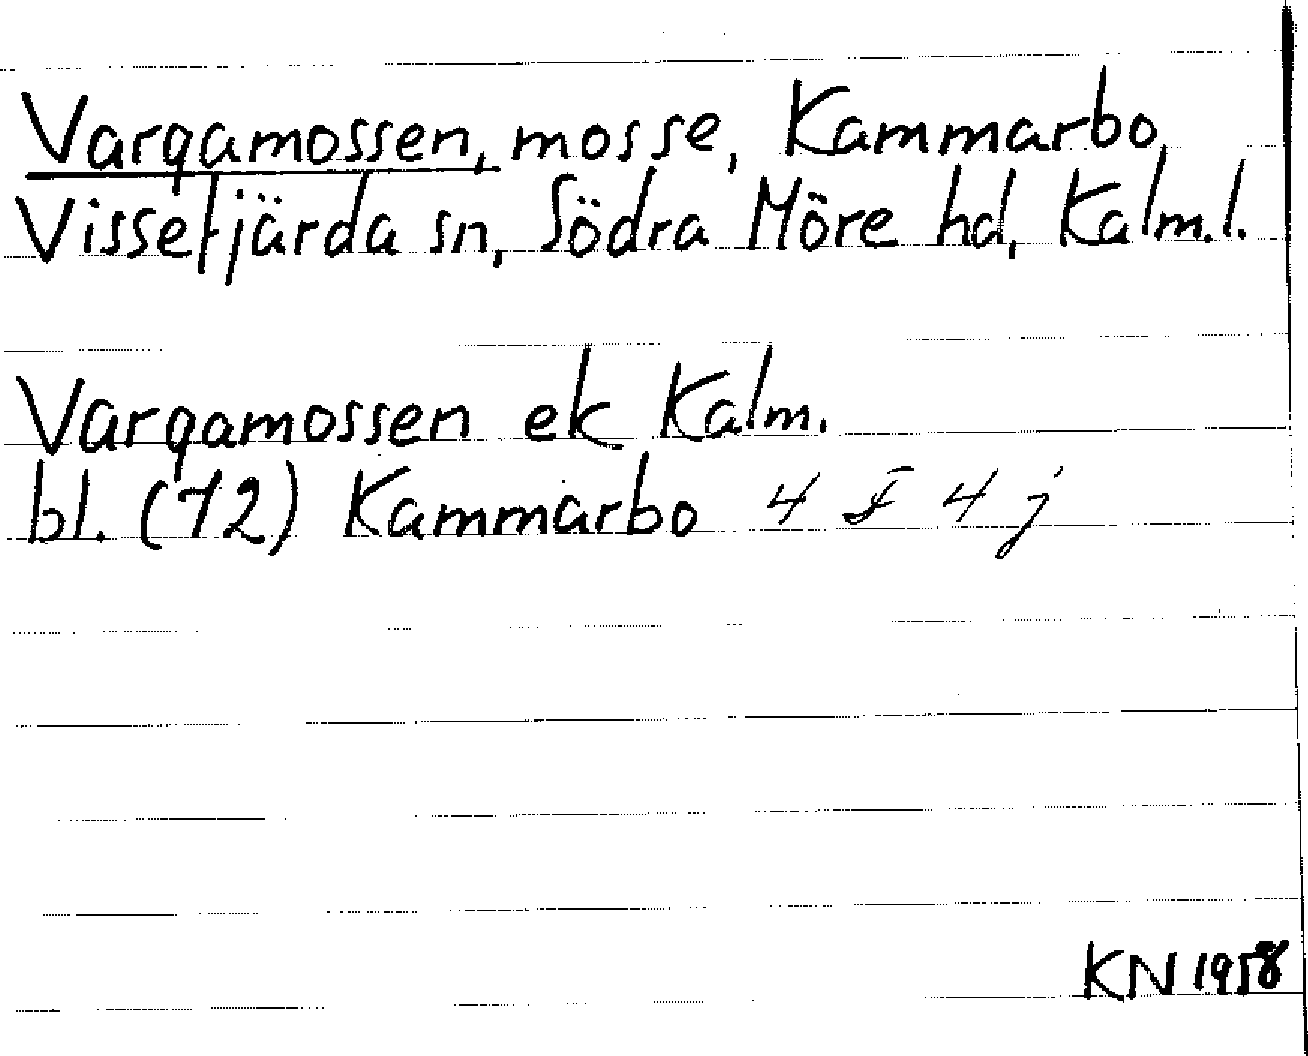 Vargamossen, mosse, Kammarbo,
Vissefjärda sn, Södra Möre hd, Kalm.l.
Vargamossen ek Kalm.
bl. (72) Kammarbo 4 F 4 j
KN 1958